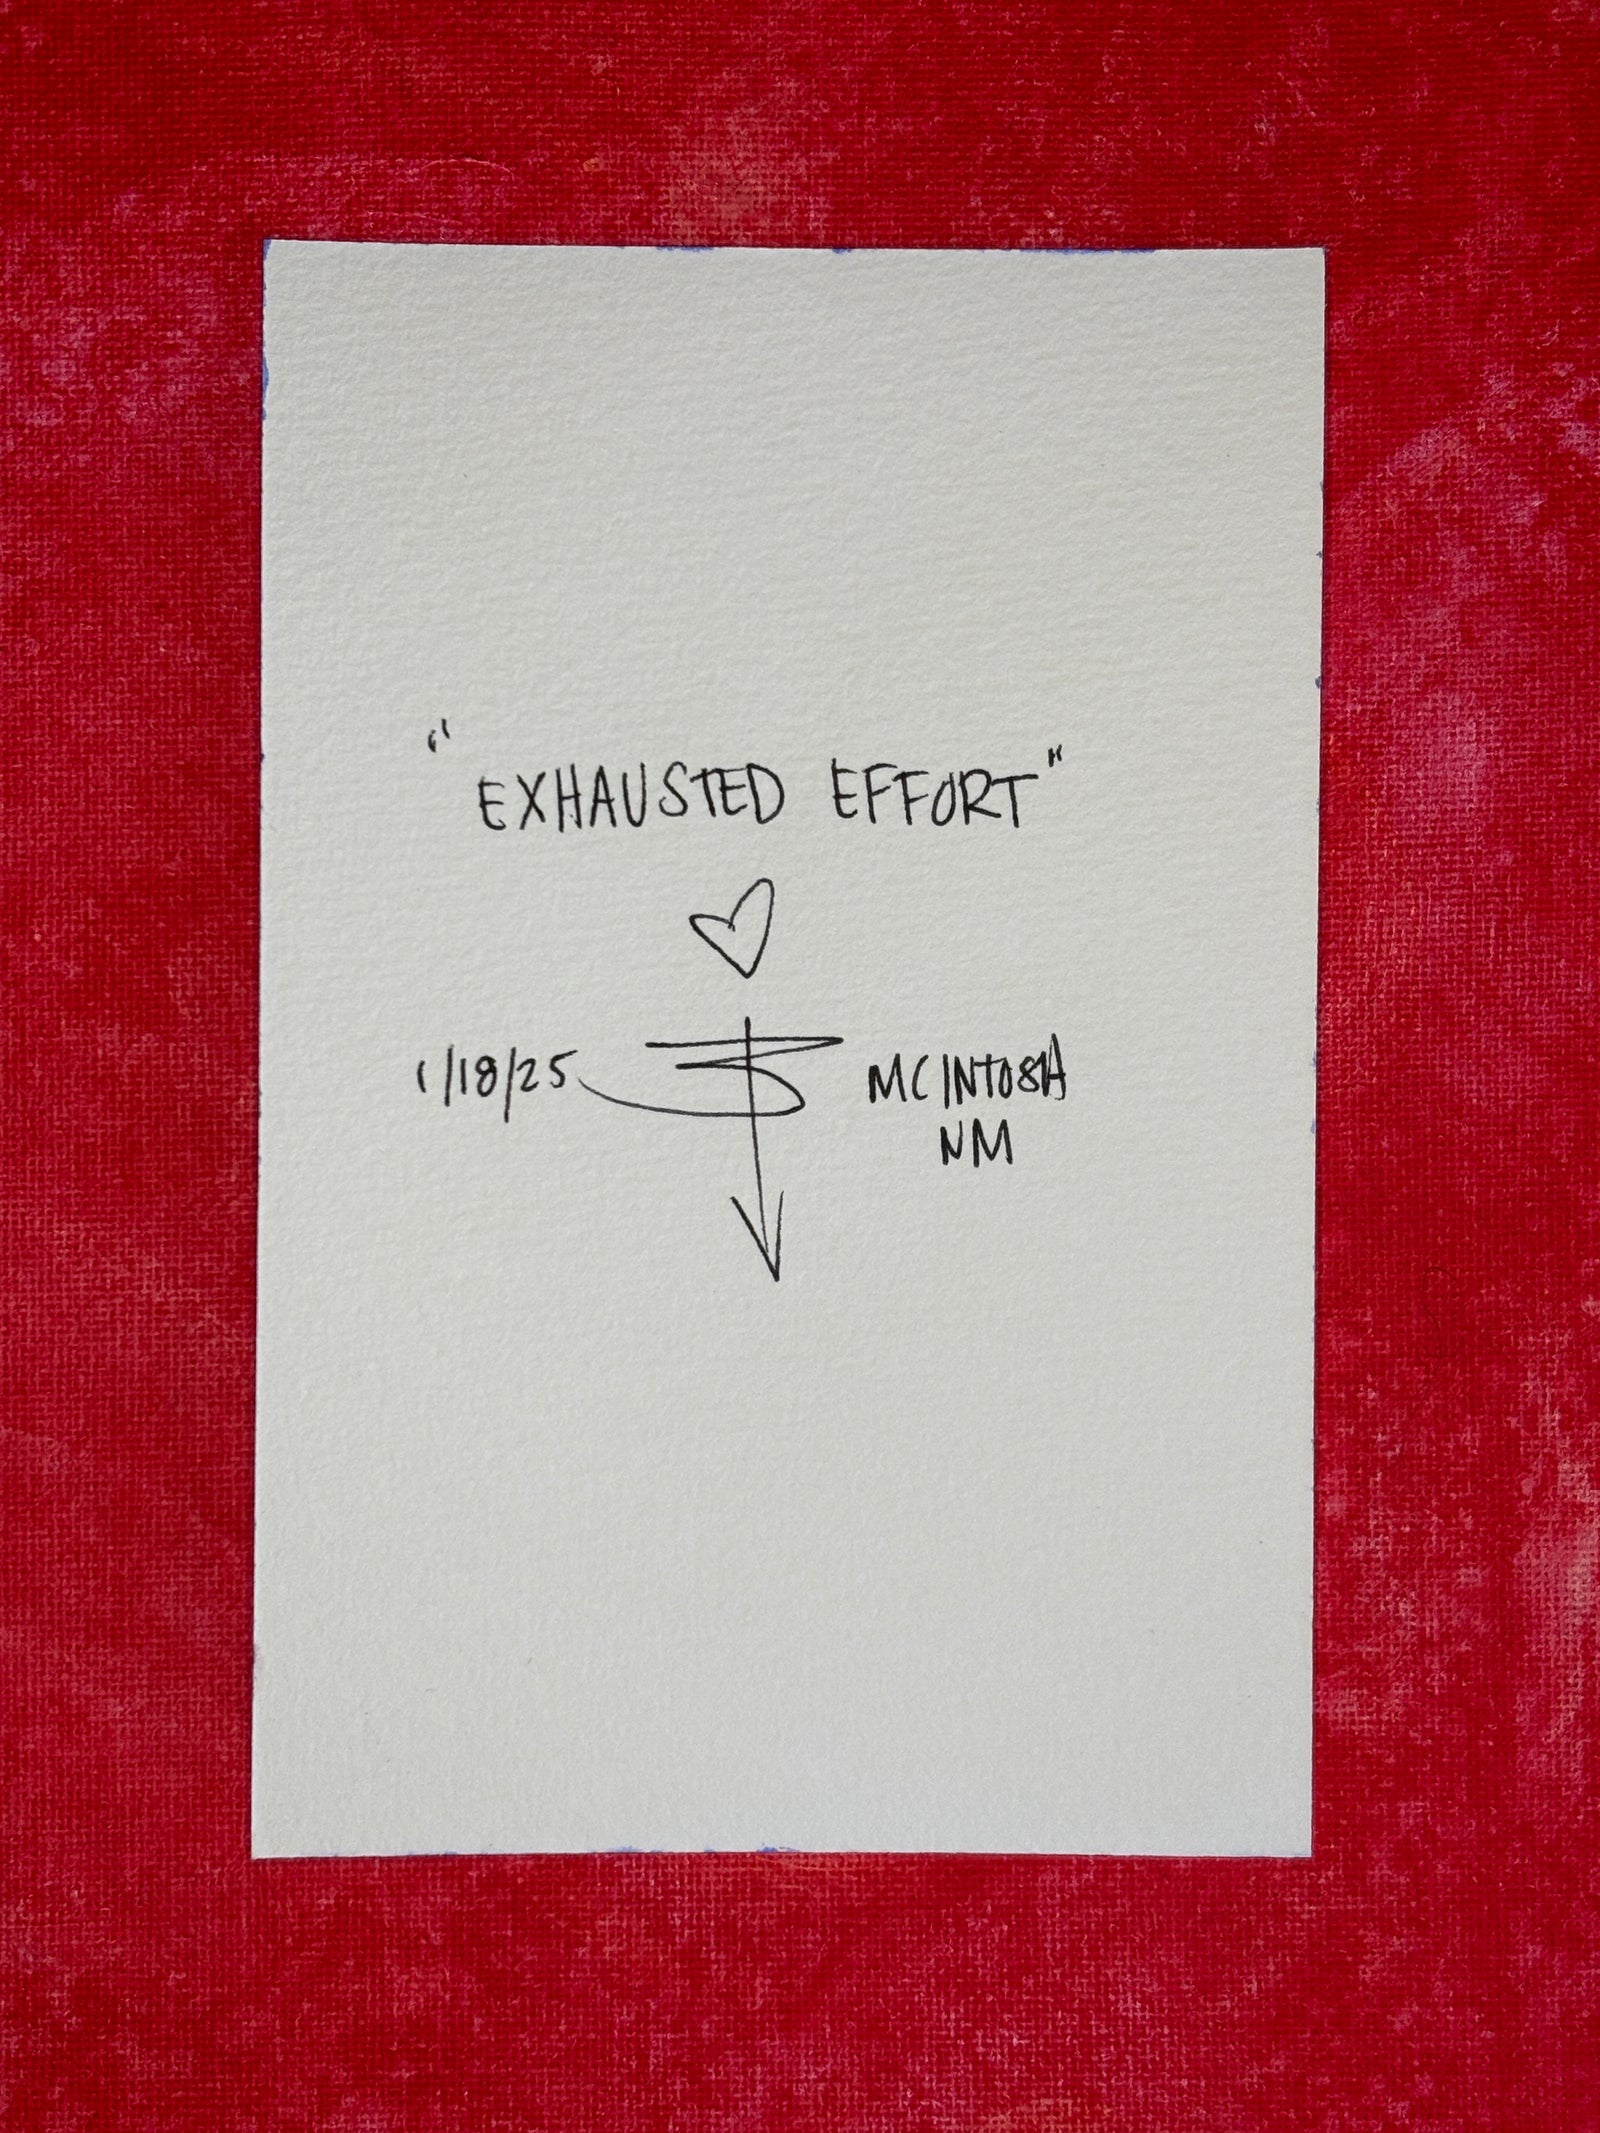 "EXHAUSTED EFFORT"
1/18/25
MCINTOSH
NM